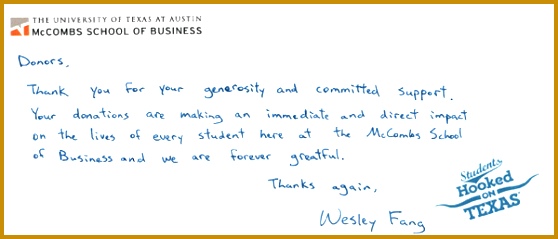 THE UNIVERSITY OF TEXAS AT AUSTIN
McCOMBS SCHOOL OF BUSINESS
Donors,
Thank you for your generosity and committed support.
Your donations are making an immediate and direct impact
on the lives of every student here at the McCombs School
of Business and we are forever greatful.
Thanks again,
Wesley Fang
Students
Hooked
ON
TEXAS